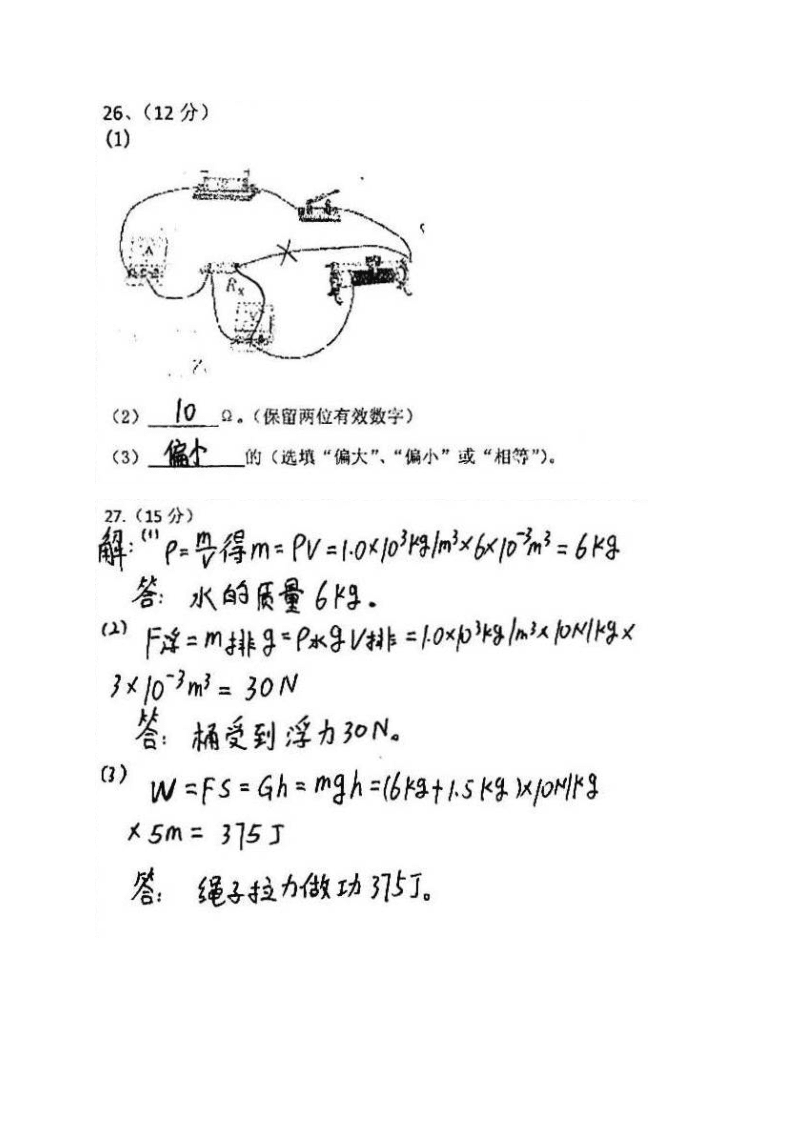 26、（12 分）
(1)
A
Rx
V
（2） 10 Ω。（保留两位有效数字）
（3） 偏小 的（选填“偏大”、“偏小”或“相等”）。
27.（15 分）
解：(1) ρ=m/V得m=ρV=1.0×10³kg/m³×6×10⁻³m³=6kg
答：水的质量6kg.
(2) F浮=m排g=ρ水gV排=1.0×10³kg/m³×10N/kg×
3×10⁻³m³=30N
答：桶受到浮力30N。
(3) W=FS=Gh=mgh=(6kg+1.5kg)×10N/kg
×5m=375J
答：绳子拉力做功375J。